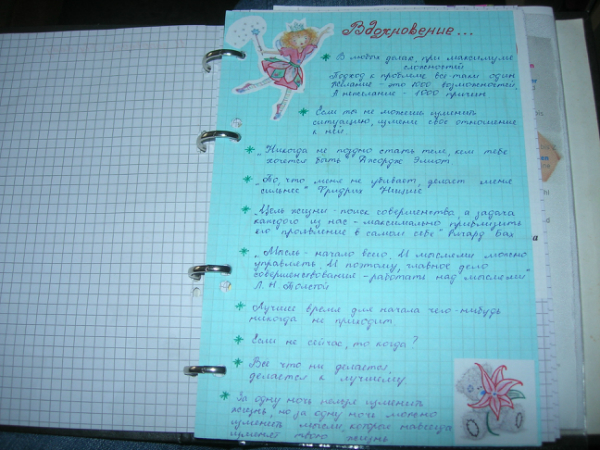 Вдохновение...
* В любых делах, при максимуме
сложностей
Подход к проблеме все-таки один
Желание - это 1000 возможностей
А нежелание - 1000 причин
* Если ты не можешь изменить
ситуацию, измени свое отношение
к ней.
* "Никогда не поздно стать тем, кем тебе
хочется быть" Джордж Элиот
* "То, что меня не убивает, делает меня
сильнее" Фридрих Ницше
* "Цель жизни - поиск совершенства, а задача
каждого из нас - максимально приблизить
его проявление в самом себе" Ричард Бах
* "Мысль - начало всего. И мыслями можно
управлять. И поэтому, главное дело
совершенствования - работать над мыслями"
Л. Н. Толстой
* Лучшее время для начала чего-нибудь
никогда не приходит
* Если не сейчас, то когда?
* Все что ни делается,
делается к лучшему
* За одну ночь нельзя изменить
жизнь, но за одну ночь можно
изменить мысли, которые навсегда
изменят твою жизнь